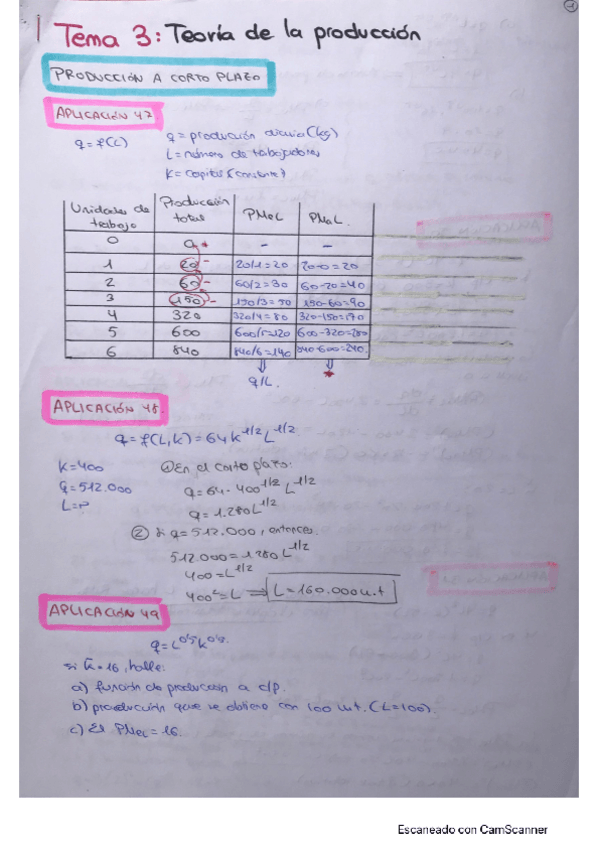 1
Tema 3: Teoría de la producción
PRODUCCIÓN A CORTO PLAZO
APLICACIÓN 47
q = f(L)
q = producción diaria (kg)
L = número de trabajadores
K = capital (constante)
Unidades de trabajo | Producción total | PMeL | PMaL
0 | 0 | - | -
1 | 20 | 20/1=20 | 20-0=20
2 | 60 | 60/2=30 | 60-20=40
3 | 150 | 150/3=50 | 150-60=90
4 | 320 | 320/4=80 | 320-150=170
5 | 600 | 600/5=120 | 600-320=280
6 | 840 | 840/6=140 | 840-600=240
⇓ ⇓
q/L. *
APLICACIÓN 48
q = f(L,K) = 64K^1/2 L^1/2
K=400
q=512.000
L=?
① En el corto plazo:
q = 64 · 400^1/2 L^1/2
q = 1.280L^1/2
② Si q=512.000, entonces:
512.000 = 1.280L^1/2
400 = L^1/2
400² = L ⇒ L=160.000 u.t
APLICACIÓN 49
si K=16, halle:
a) función de producción a c/p.
b) producción que se obtiene con 100 u.t. (L=100).
c) El PMeL = 16.
Escaneado con CamScanner